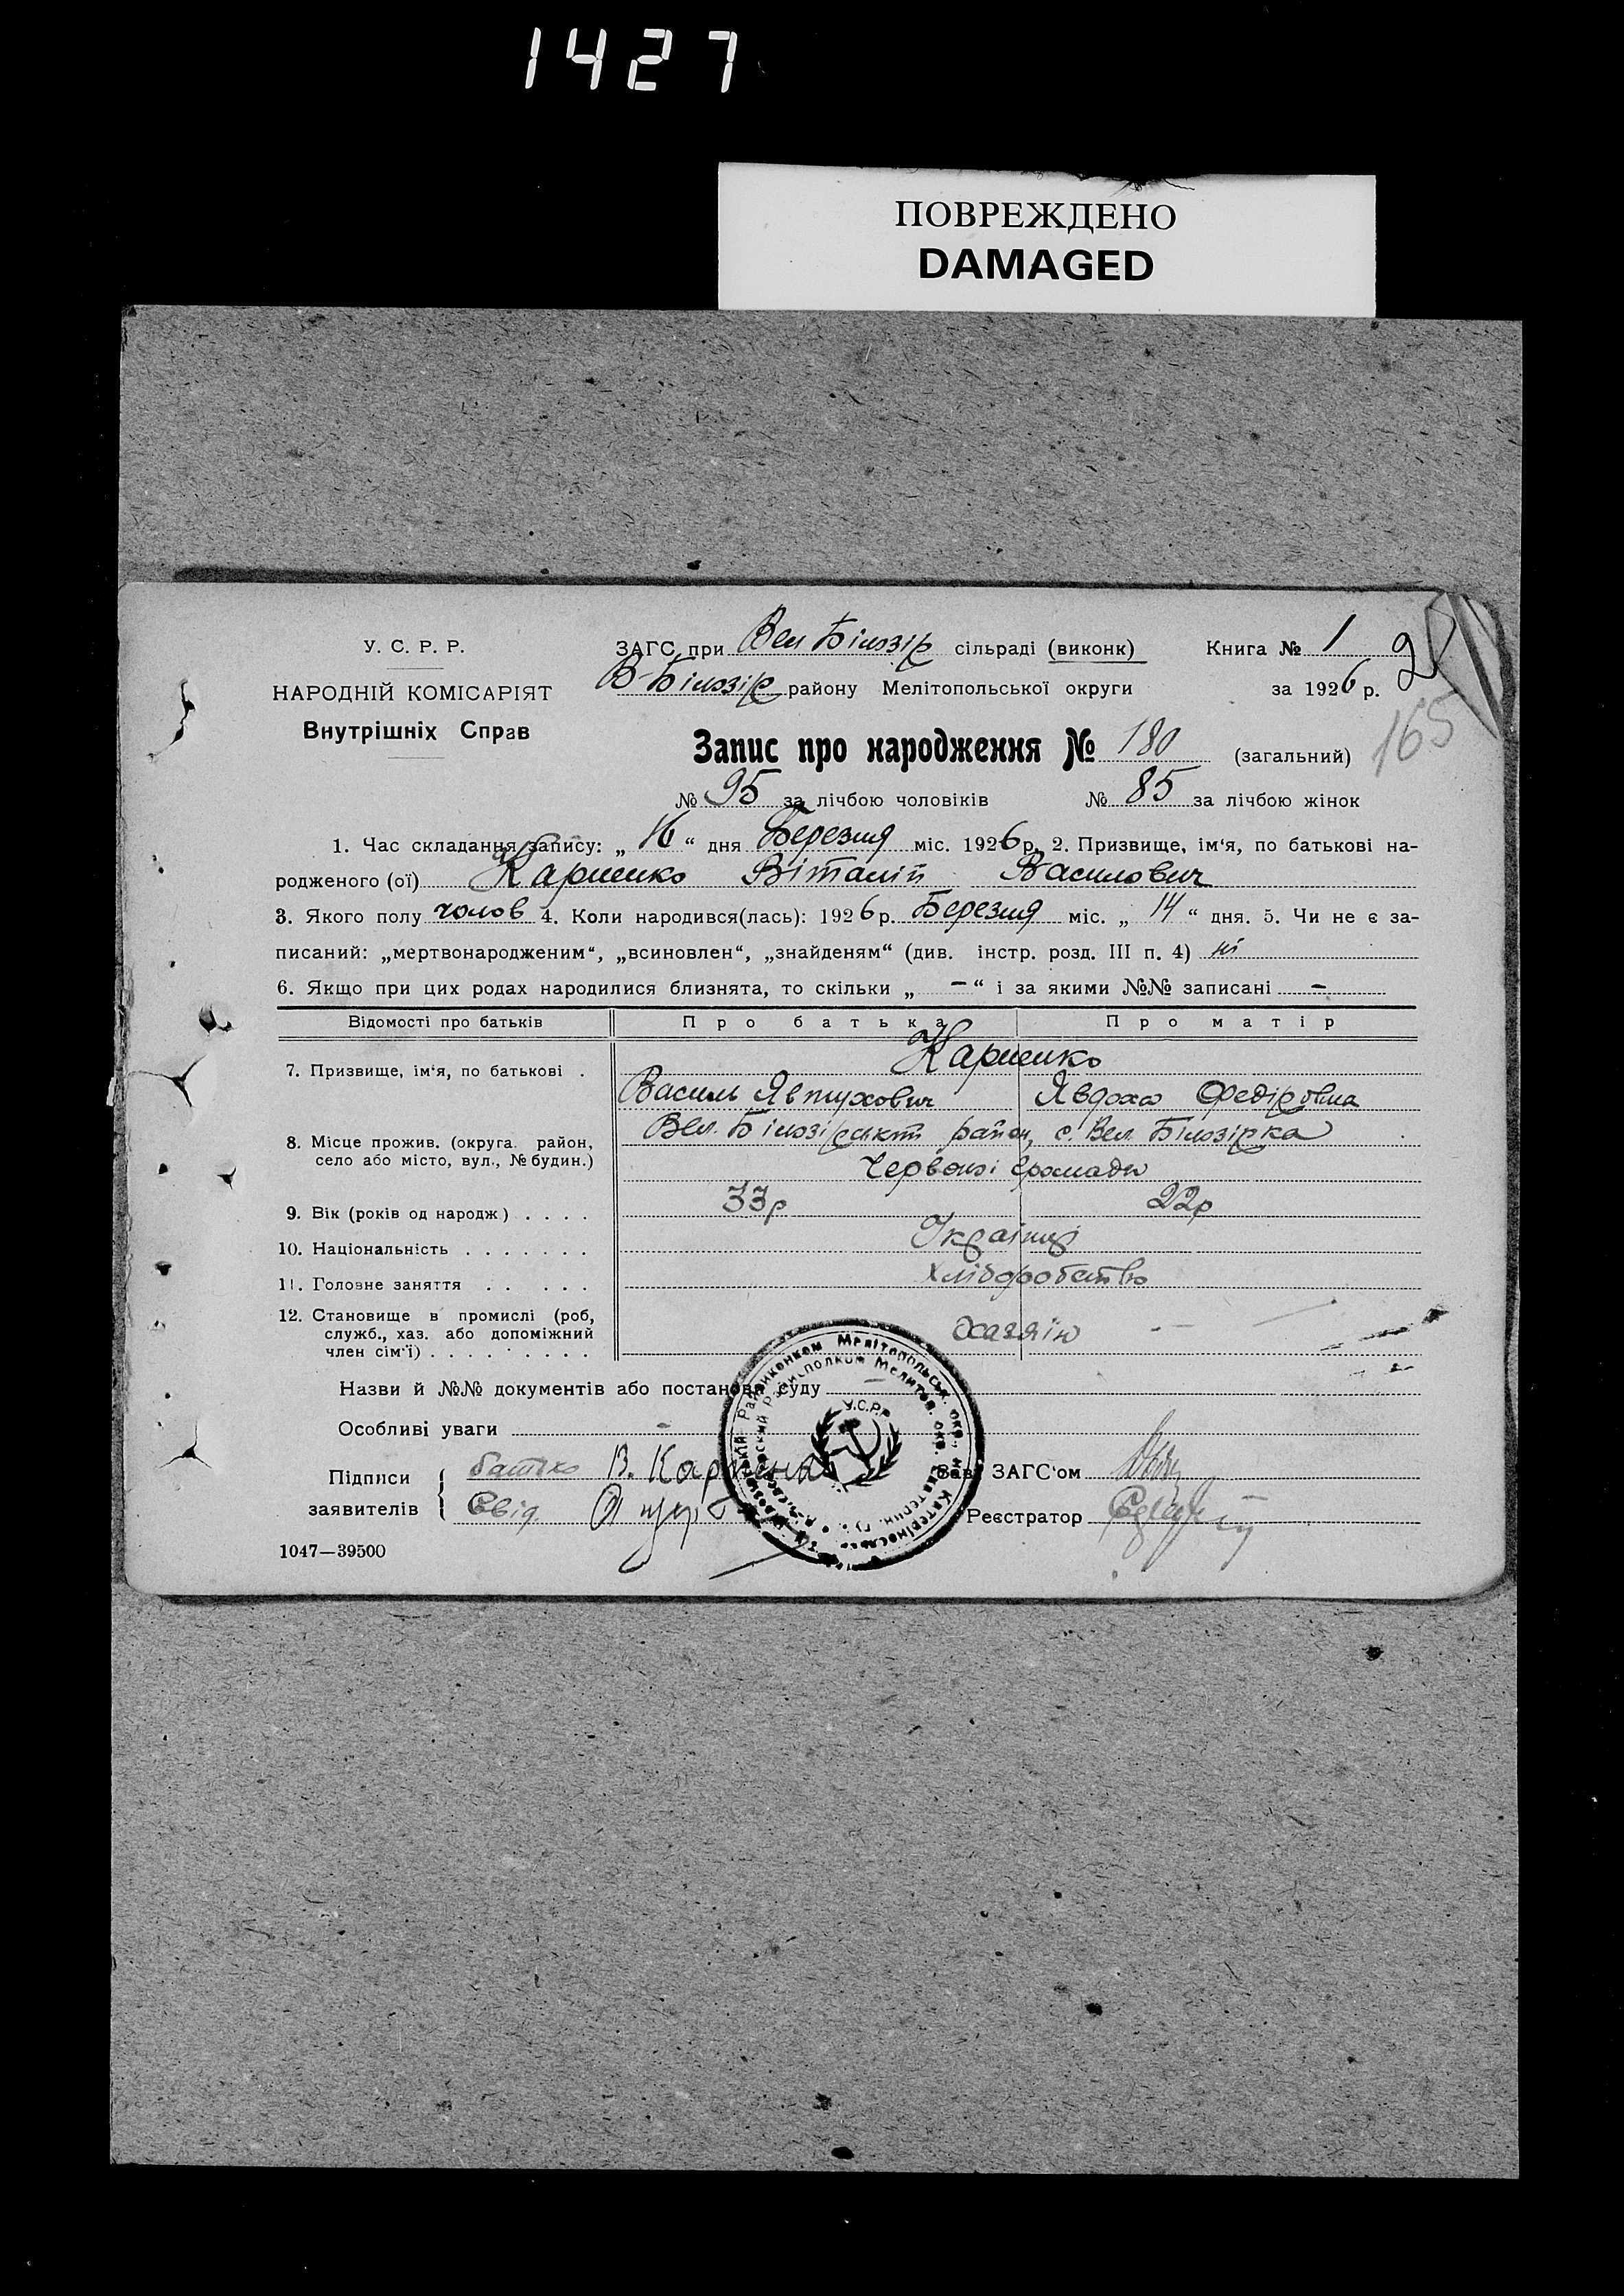 1427
ПОВРЕЖДЕНО
DAMAGED
У. С. Р. Р.
НАРОДНІЙ КОМІСАРІЯТ
Внутрішніх Справ
ЗАГС при Вел Білозір сільраді (виконк) Книга № 1
В-Білозір району Мелітопольської округи за 1926 р.
2
165
Запис про народження № 180 (загальний)
№ 95 за лічбою чоловіків № 85 за лічбою жінок
1. Час складання запису: „ 16 “ дня Березня міс. 1926 р. 2. Призвище, ім‘я, по батькові на-
родженого (ої) Карпенко Віталій Василович
3. Якого полу чолов 4. Коли народився(лась): 1926 р. Березня міс. „ 14 “ дня. 5. Чи не є за-
писаний: „мертвонародженим“, „всиновлен“, „знайденям“ (див. інстр. розд. III п. 4) ні
6. Якщо при цих родах народилися близнята, то скільки „ — “ і за якими №№ записані —
Відомості про батьків Про батька Про матір
7. Призвище, ім‘я, по батькові . Карпенко
Василь Явтухович Явдоха Федіровна
8. Місце прожив. (округа, район, село або місто, вул., № будин.) Вел. Білозірський район, с. Вел Білозірка
Червоної Громади
9. Вік (років од народж) . . . . 33р 22р
10. Національність . . . . . . . Українці
11. Головне заняття . . . . . Хліборобство
12. Становище в промислі (роб,
служб., хаз. або допоміжний
член сім‘ї) . . . . . . . . . хазяїн —
Назви й №№ документів або постанова суду —
Особливі уваги —
Підписи
заявителів
батько В. Карпенко
Свід.
У.С.Р.Р
Зав. ЗАГС‘ом
Реєстратор
1047—39500